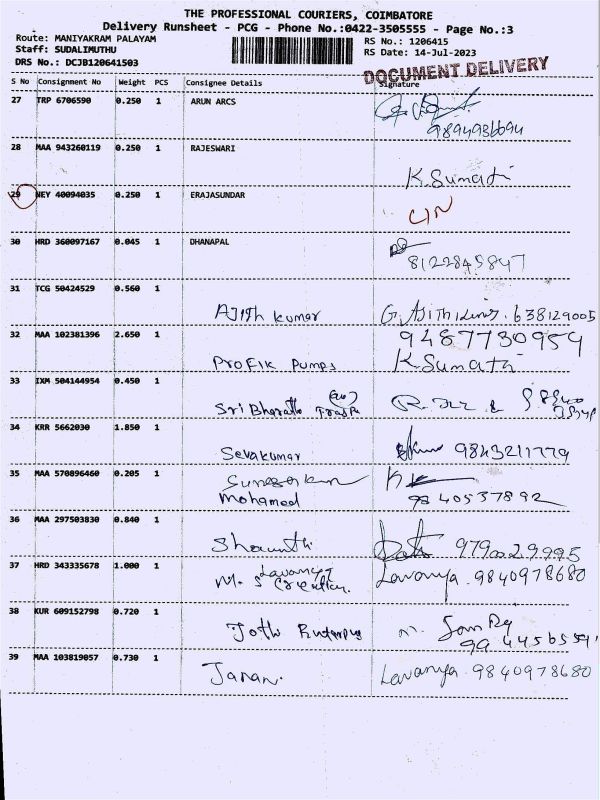 THE PROFESSIONAL COURIERS, COIMBATORE
Delivery Runsheet - PCG - Phone No.:0422-3505555 - Page No.:3
Route: MANIYAKRAM PALAYAM
Staff: SUDALIMUTHU
DRS No.: DCJB120641503
RS No.: 1206415
RS Date: 14-Jul-2023
DOCUMENT DELIVERY
S No Consignment No Weight PCS Consignee Details Signature
27 TRP 6706590 0.250 1 ARUN ARCS
9894936694
28 MAA 943260119 0.250 1 RAJESWARI
K. Sumathi
29 NEY 40094035 0.250 1 ERAJASUNDAR
30 HRD 360097167 0.045 1 DHANAPAL
8122845847
31 TCG 50424529 0.560 1
Ajith kumar 638129005
32 MAA 102381396 2.650 1 9487730959
Profik Pumps K. Sumathi
33 IXM 504144954 0.450 1
Sri Bharath
34 KRR 5662030 1.850 1
Sevakumar 9843211779
35 MAA 570896460 0.205 1
Mohamed 9840537892
36 MAA 297503830 0.840 1
9790029995
37 HRD 343335678 1.000 1 Lavanya
M. S Lavanya. 9840978680
38 KUR 609152798 0.720 1
Jothi
39 MAA 103819057 0.730 1
Janan. Lavanya 9840978680